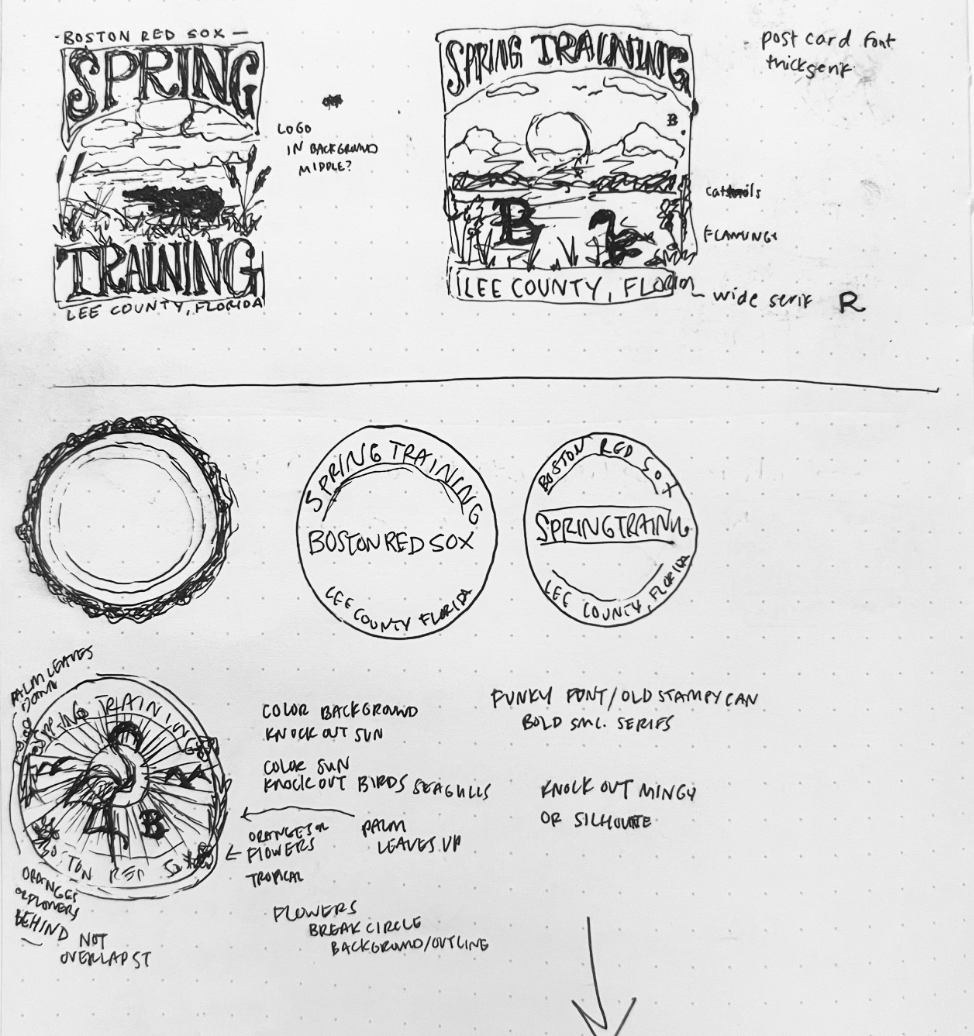 -BOSTON RED SOX-
SPRING
TRAINING
LEE COUNTY, FLORIDA
LOGO
IN BACKGROUND
MIDDLE?
SPRING TRAINING
B
B
LEE COUNTY, FLORIDA
post card font
thick serif
cattails
FLAMINGO
wide serif R
SPRING TRAINING
BOSTON RED SOX
LEE COUNTY FLORIDA
BOSTON RED SOX
SPRING TRAINING
LEE COUNTY, FLORIDA
PALM LEAVES
DOWN
SPRING TRAINING
B
BOSTON RED SOX
ORANGES
OR FLOWERS
BEHIND NOT
OVERLAPST
COLOR BACKGROUND
KNOCK OUT SUN
COLOR SUN
KNOCK OUT BIRDS SEAGULLS
ORANGES OR
FLOWERS
TROPICAL
PALM
LEAVES UP
FLOWERS
BREAK CIRCLE
BACKGROUND/OUTLINE
FUNKY FONT/OLD STAMPY CAN
BOLD SML. SERIFS
KNOCK OUT MINGY
OR SILHOUTE